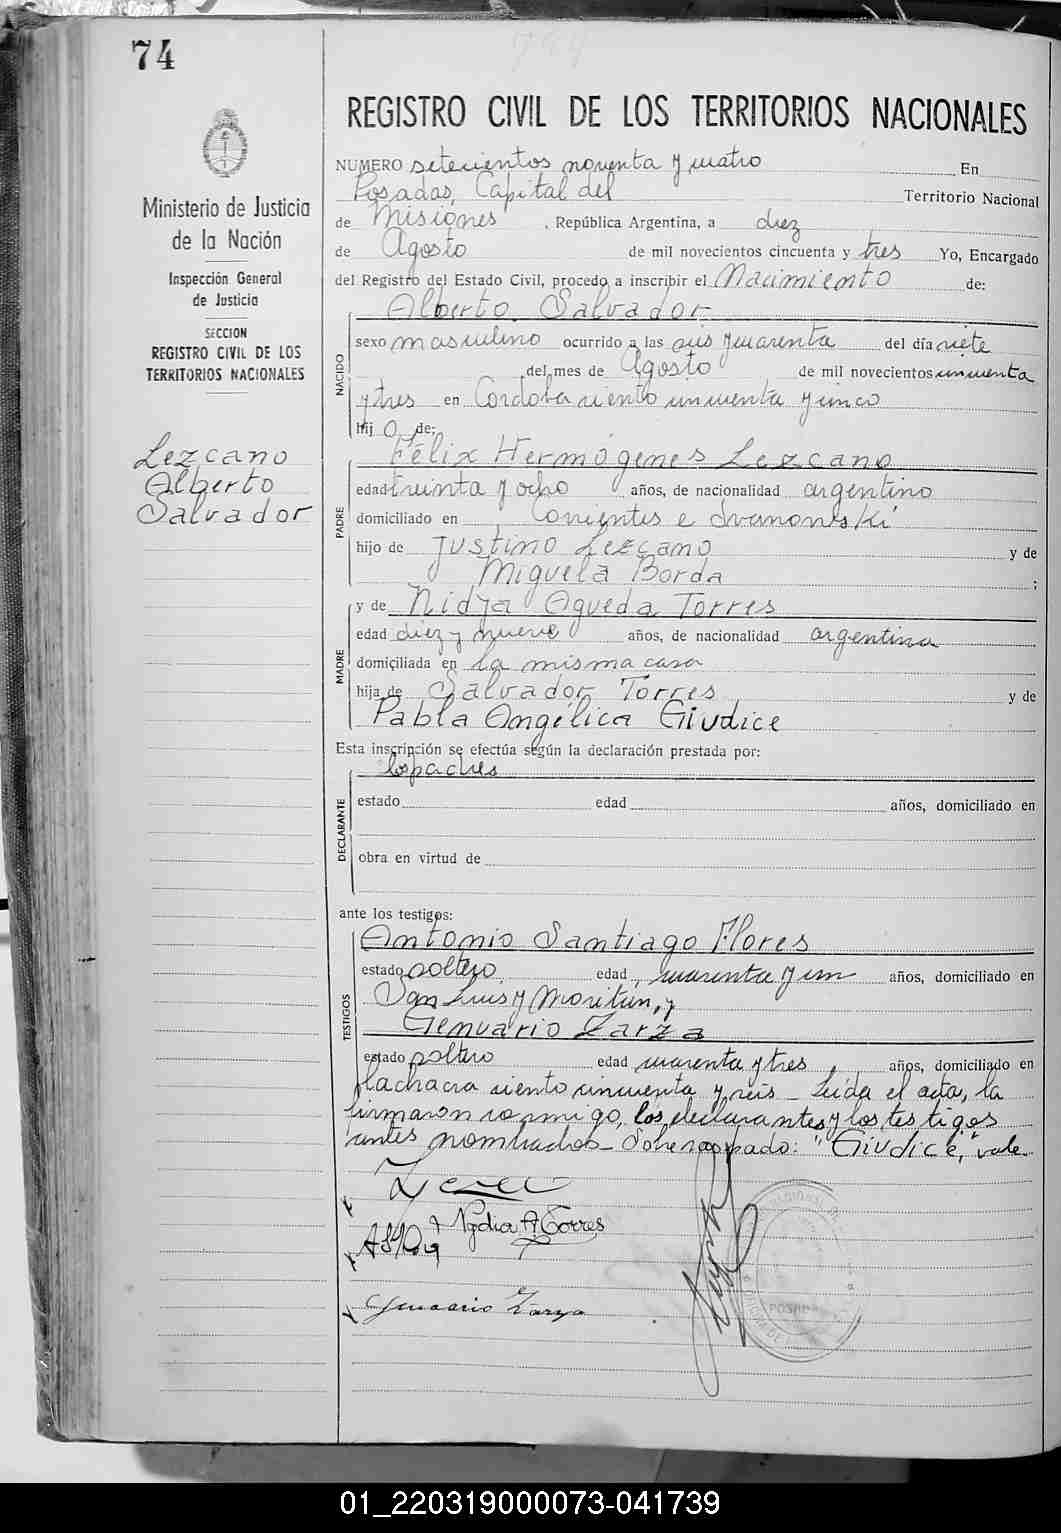 74
REGISTRO CIVIL DE LOS TERRITORIOS NACIONALES
Ministerio de Justicia
de la Nación
Inspección General
de Justicia
SECCION
REGISTRO CIVIL DE LOS
TERRITORIOS NACIONALES
Lezcano
Alberto
Salvador
NUMERO setecientos noventa y cuatro En
Posadas, Capital del Territorio Nacional
de Misiones, República Argentina, a diez
de Agosto de mil novecientos cincuenta y tres Yo, Encargado
del Registro del Estado Civil, procedo a inscribir el Nacimiento de:
Alberto Salvador
NACIDO
sexo masculino ocurrido a las seis y cuarenta del día siete
del mes de Agosto de mil novecientos cincuenta
y tres en Córdoba ciento cincuenta y cinco
hijo de:
PADRE
Félix Hermógenes Lezcano
edad treinta y ocho años, de nacionalidad argentino
domiciliado en Corrientes e Ivanowski
hijo de Justino Lezcano y de
Miguela Borda ;
MADRE
y de Nidya Agueda Torres
edad diez y nueve años, de nacionalidad argentina
domiciliada en la misma casa
hija de Salvador Torres y de
Pabla Angélica Giudice
Esta inscripción se efectúa según la declaración prestada por:
los padres
DECLARANTE
estado edad años, domiciliado en
obra en virtud de
ante los testigos:
TESTIGOS
Antonio Santiago Flores
estado soltero edad cuarenta y un años, domiciliado en
San Luis y Moritan, y
Genuario Zarza
estado soltero edad cuarenta y tres años, domiciliado en
la chacra ciento cincuenta y seis - Leída el acta, la
firmaron conmigo, los declarantes y los testigos
antes nombrados - Sobrerraspado: "Giudice", vale.
Nydia A Torres
Genuario Zarza
POSADAS
01_220319000073-041739